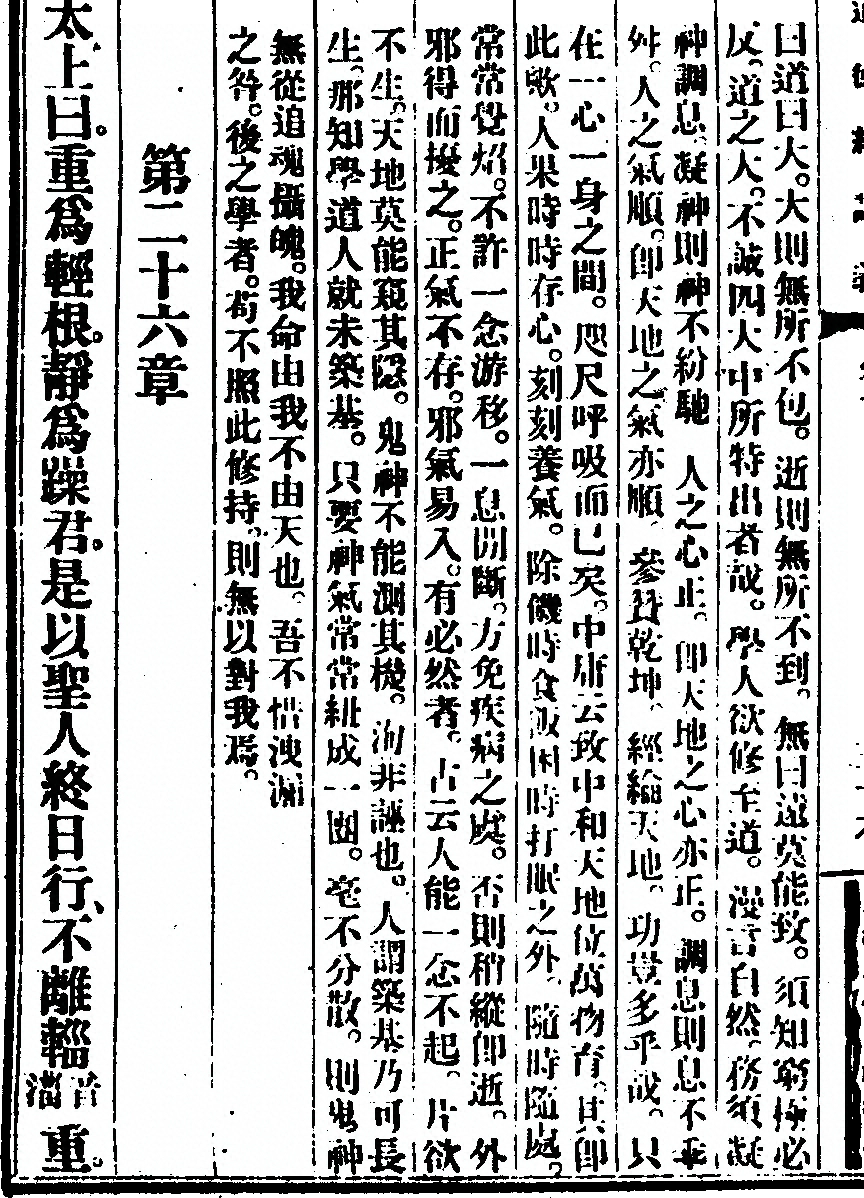 曰道曰大。大則無所不包。逝則無所不到。無曰遠莫能致。須知窮極必
反。道之大。不誠四大中所特出者哉。學人欲修至道。漫言自然。務須凝
神調息。凝神則神不紛馳　人之心正。卽天地之心亦正。調息則息不乖
舛。人之氣順。卽天地之氣亦順。參贊乾坤。經綸天地。功豈多乎哉。只
在一心一身之間。咫尺呼吸而已矣。中庸云致中和天地位萬物育。其卽
此歟。人果時時存心。刻刻養氣。除饑時食飯困時打眠之外。隨時隨處。
常常覺炤。不許一念游移。一息間斷。方免疾病之虞。否則稍縱卽逝。外
邪得而擾之。正氣不存。邪氣易入。有必然者。古云人能一念不起。片欲
不生。天地莫能窺其隱。鬼神不能測其機。洵非誣也。人謂築基乃可長
生。那知學道人就未築基。只要神氣常常紐成一團。毫不分散。則鬼神
無從追魂攝魄。我命由我不由天也。吾不惜洩漏
之咎。後之學者。苟不照此修持。則無以對我焉。
第二十六章
太上曰。重爲輕根。靜爲躁君。是以聖人終日行、不離輜音淄重。